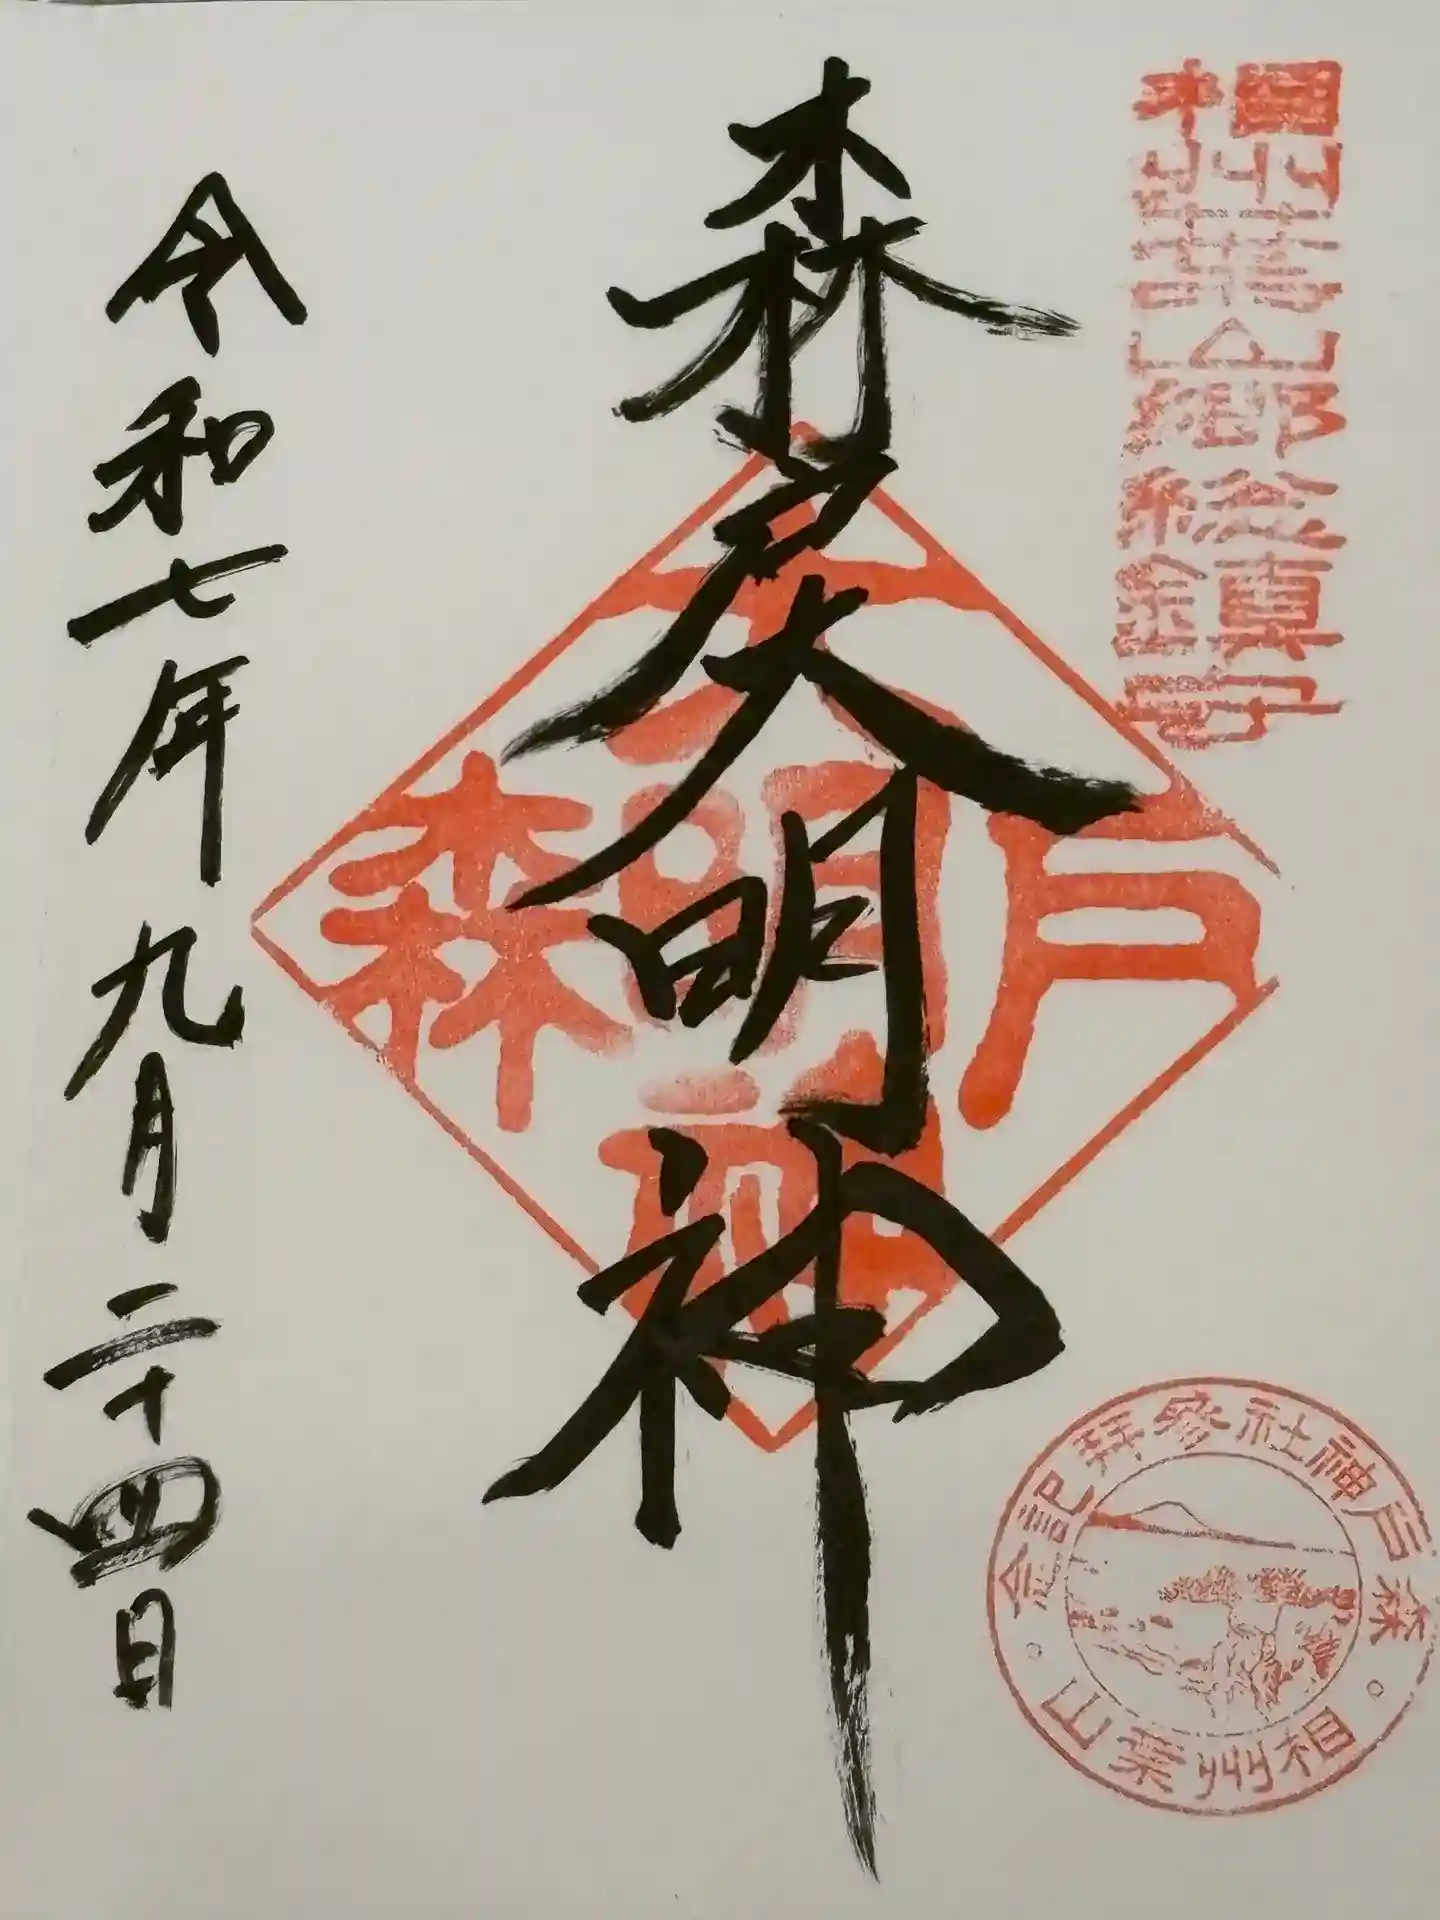 相州葉山郷総鎮守
森戸大明神
令和七年九月二十四日
森戸大明神
森戸神社参拝記念
相州葉山